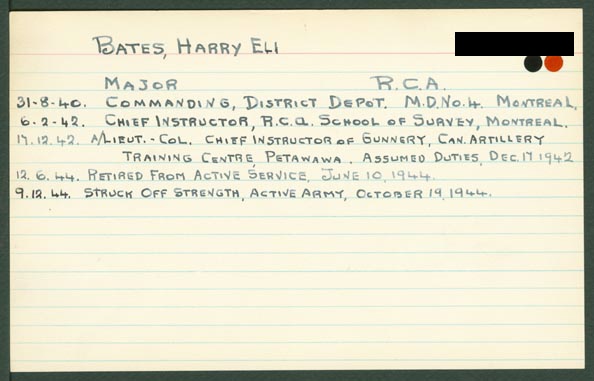 BATES, HARRY ELI
MAJOR R.C.A.
31-8-40. COMMANDING, DISTRICT DEPOT. M.D.NO.4. MONTREAL.
6.2-42. CHIEF INSTRUCTOR, R.C.A. SCHOOL OF SURVEY, MONTREAL.
17.12.42. A/LIEUT.-COL. CHIEF INSTRUCTOR OF GUNNERY, CAN. ARTILLERY
TRAINING CENTRE, PETAWAWA. ASSUMED DUTIES, DEC.17 1942
12.6.44. RETIRED FROM ACTIVE SERVICE, JUNE 10, 1944.
9.12.44. STRUCK OFF STRENGTH, ACTIVE ARMY, OCTOBER 19, 1944.